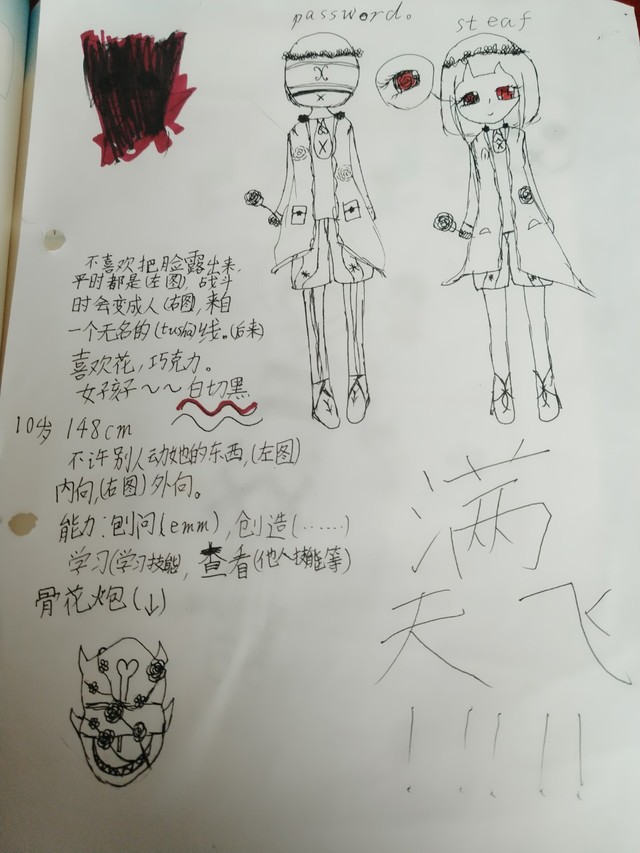 password。
steaf
不喜欢把脸露出来,
平时都是(左图),战斗
时会变成人(右图),来自
一个无名的(tusha)线。(后来)
喜欢花,巧克力。
女孩子~~白切黑
10岁 148cm
不许别人动她的东西,(左图)
内向,(右图)外向。
能力:刨问(emm),创造(……)
学习(学习技能,查看(他人技能等)
骨花炮(↓)
满
天 飞
!!!!!